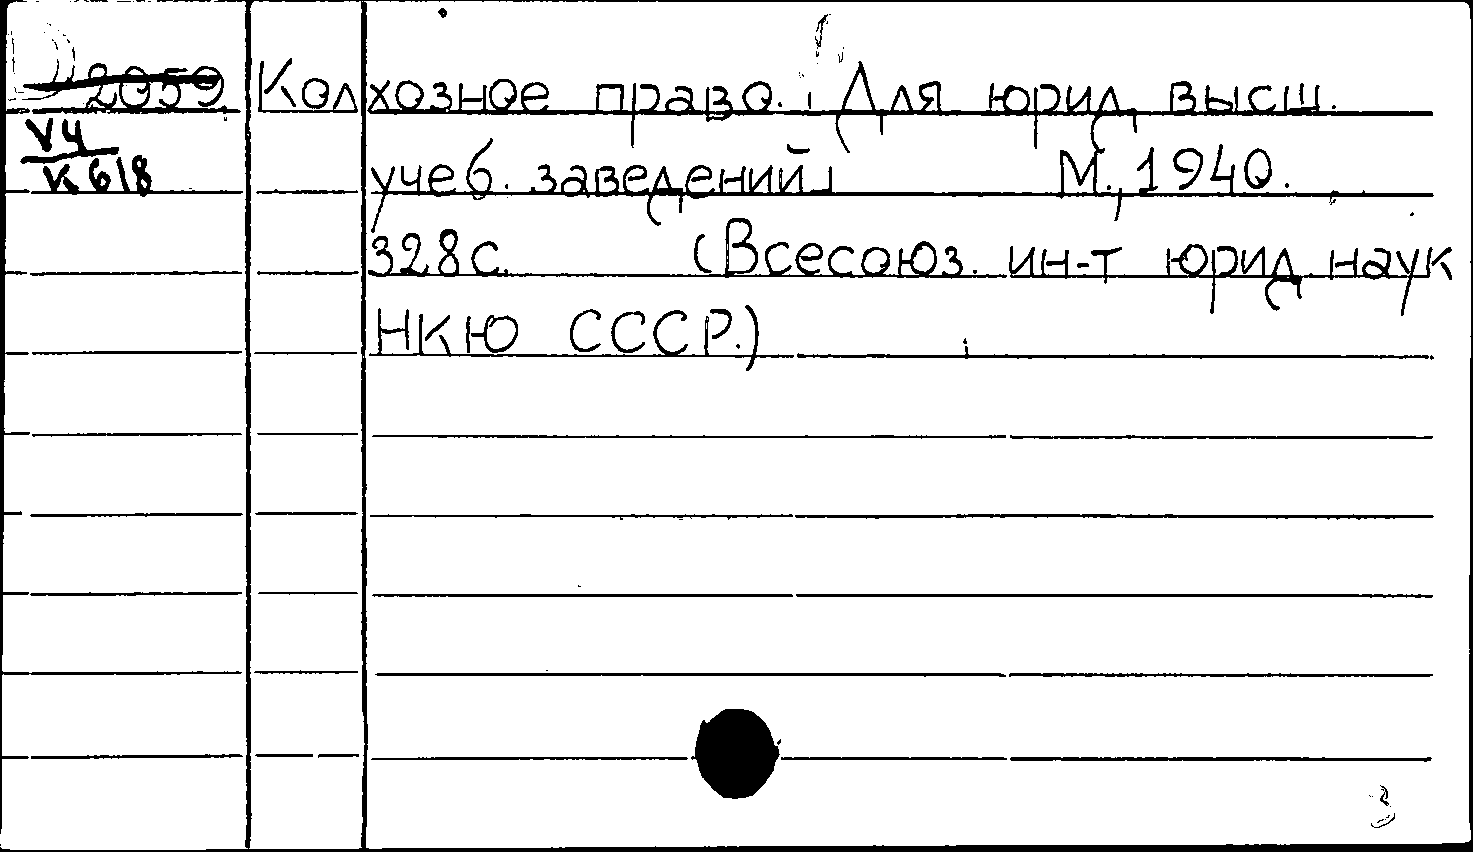 2059 Колхозное право. Для юрид. высш.
V4
K618 учеб. заведений] М., 1940.
328с. (Всесоюз. ин-т юрид. наук
НКЮ СССР.)
3